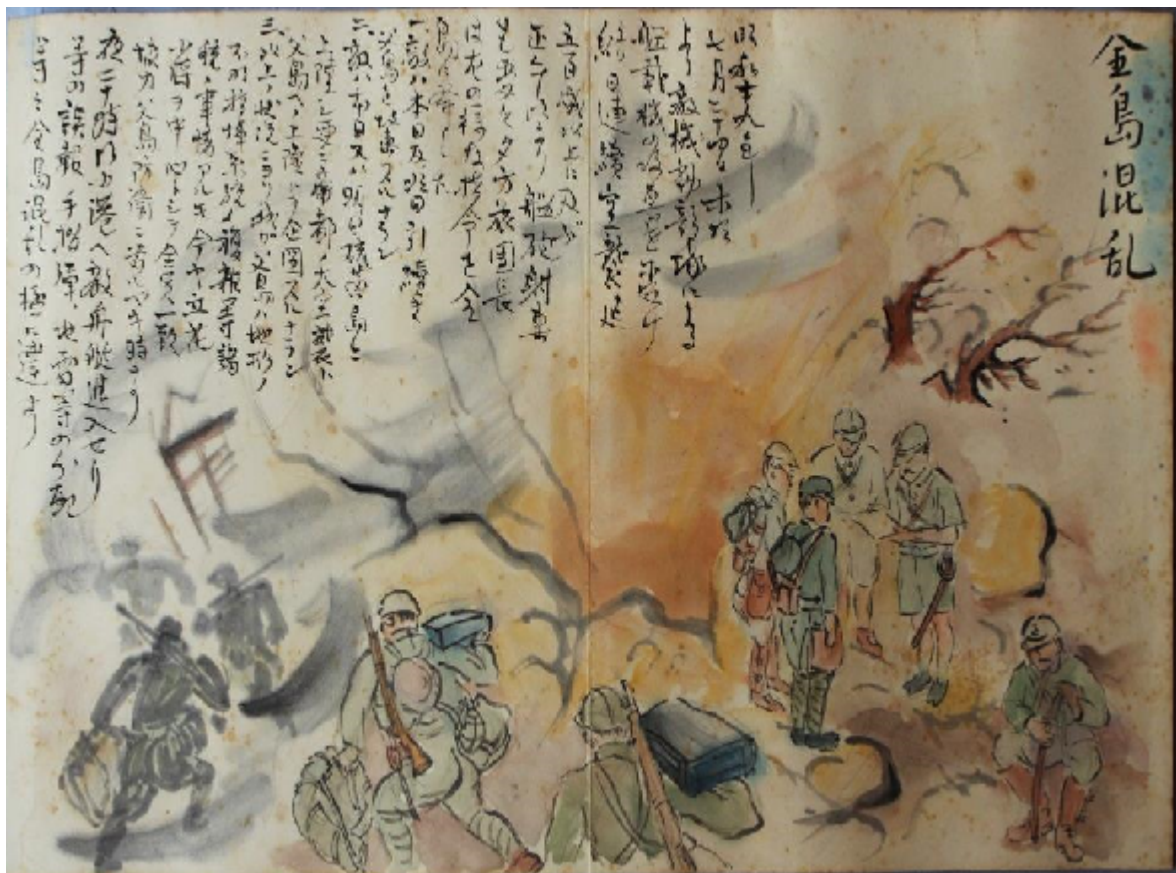 全島混乱
昭和十九年
七月二十四日未明
より敵機動部隊による
艦載機の攻撃を受け
終日連続空襲延
五百機以上に及ぶ
正午頃より艦砲射撃
も交え夕方旅団長
は左の様な指令を全
島に発した
一、敵ハ本日及明日引続キ
父島を攻撃スルナラン
二、敵ハ本日又ハ明日硫黄島ニ
上陸シ帝都ノ大空襲
父島ヘノ上陸ヲ企図スルナラン
三、以上ノ状況ニヨリ我ガ父島ハ地形ノ
不利指揮系統ノ複雑等諸
種ノ事情アルモ今ヤ立花
少将ヲ中心トシテ全軍一致
協力父島防衛ニ当ルベキ時ナリ
夜二十時頃小港ヘ敵舟艇進入セリ
等の誤報、手榴弾、地雷等の分配
等々全島混乱の極に達せり